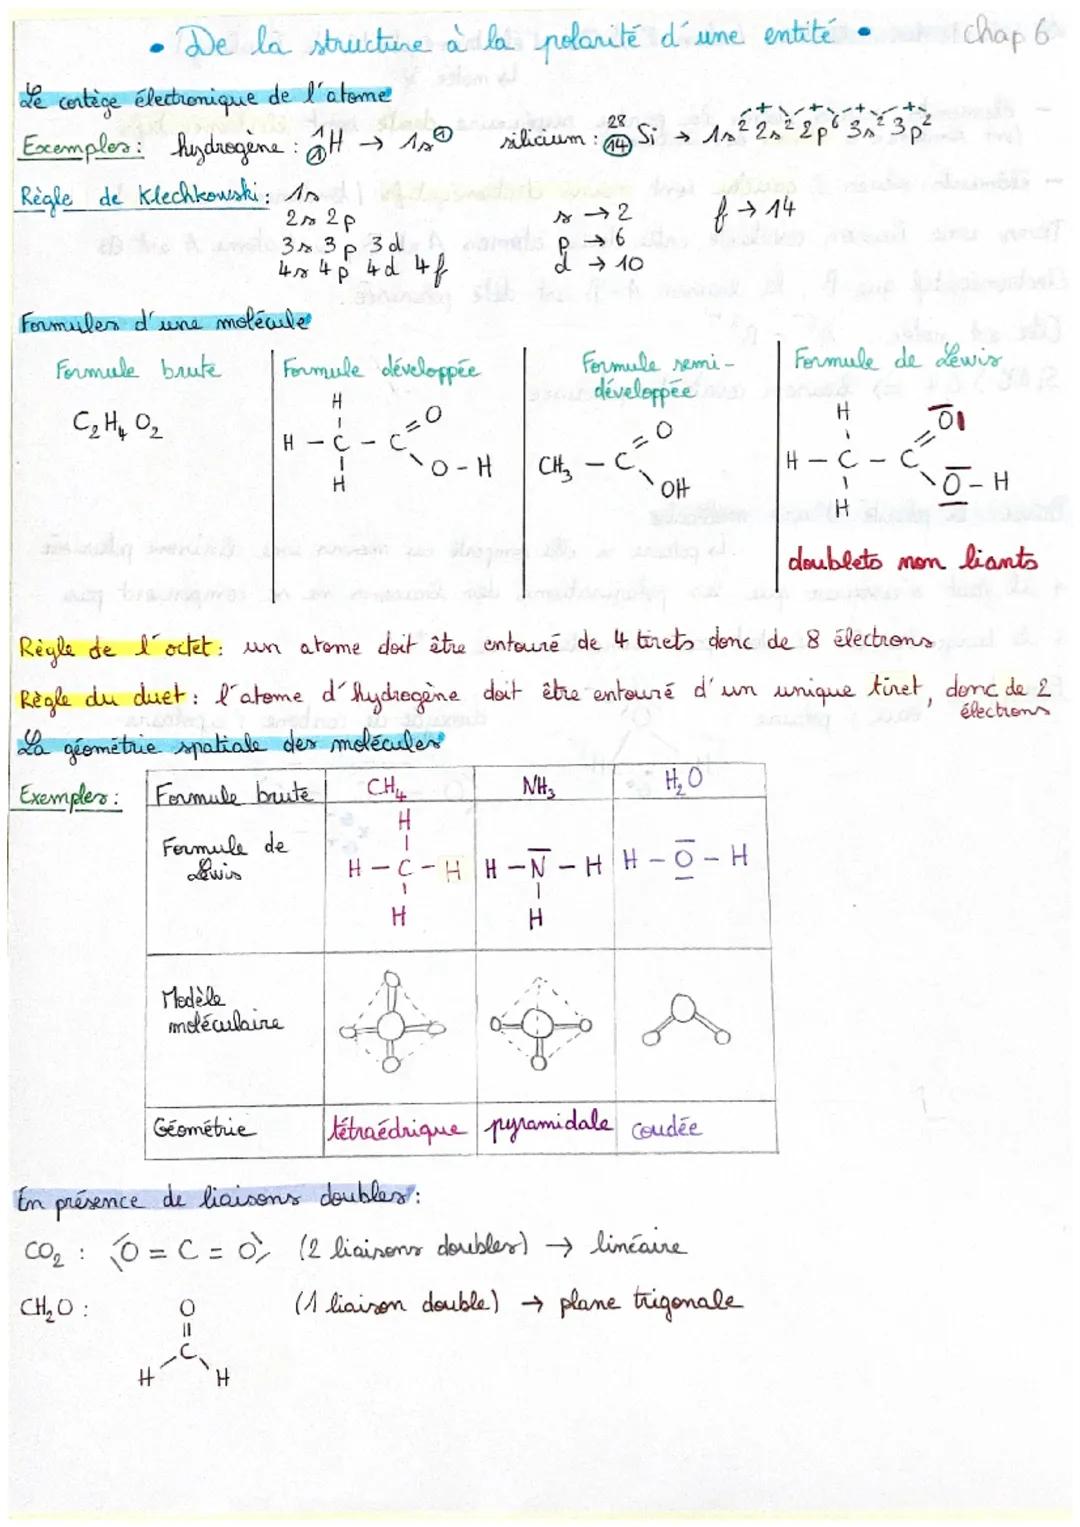 • De la structure à la polarité d'une entité • chap 6
Le cortège électronique de l'atome
Exemples : hydrogène : ¹₁H → 1s¹ silicium : ²⁸₁₄Si → 1s² 2s² 2p⁶ 3s² 3p²
Règle de Klechkowski : 1s
2s 2p
3s 3p 3d
4s 4p 4d 4f
s → 2
p → 6
d → 10
f → 14
Formules d'une molécule
Formule brute
C₂H₄O₂
Formule développée
H
H – C – C = O
O – H
H
Formule semi-
développée
O
CH₃ – C
OH
Formule de Lewis
H
O
H – C – C
O – H
H
doublets non liants
Règle de l'octet : un atome doit être entouré de 4 tirets donc de 8 électrons
Règle du duet : l'atome d'hydrogène doit être entouré d'un unique tiret, donc de 2
électrons
La géométrie spatiale des molécules
Exemples :
Formule brute CH₄ NH₃ H₂O
Formule de
Lewis
H
H – C – H
H
H – N – H
H
H – O – H
Modèle
moléculaire
Géométrie tétraédrique pyramidale coudée
En présence de liaisons doubles :
CO₂ : O = C = O (2 liaisons doubles) → linéaire
CH₂O : (1 liaison double) → plane trigonale
O
C
H H